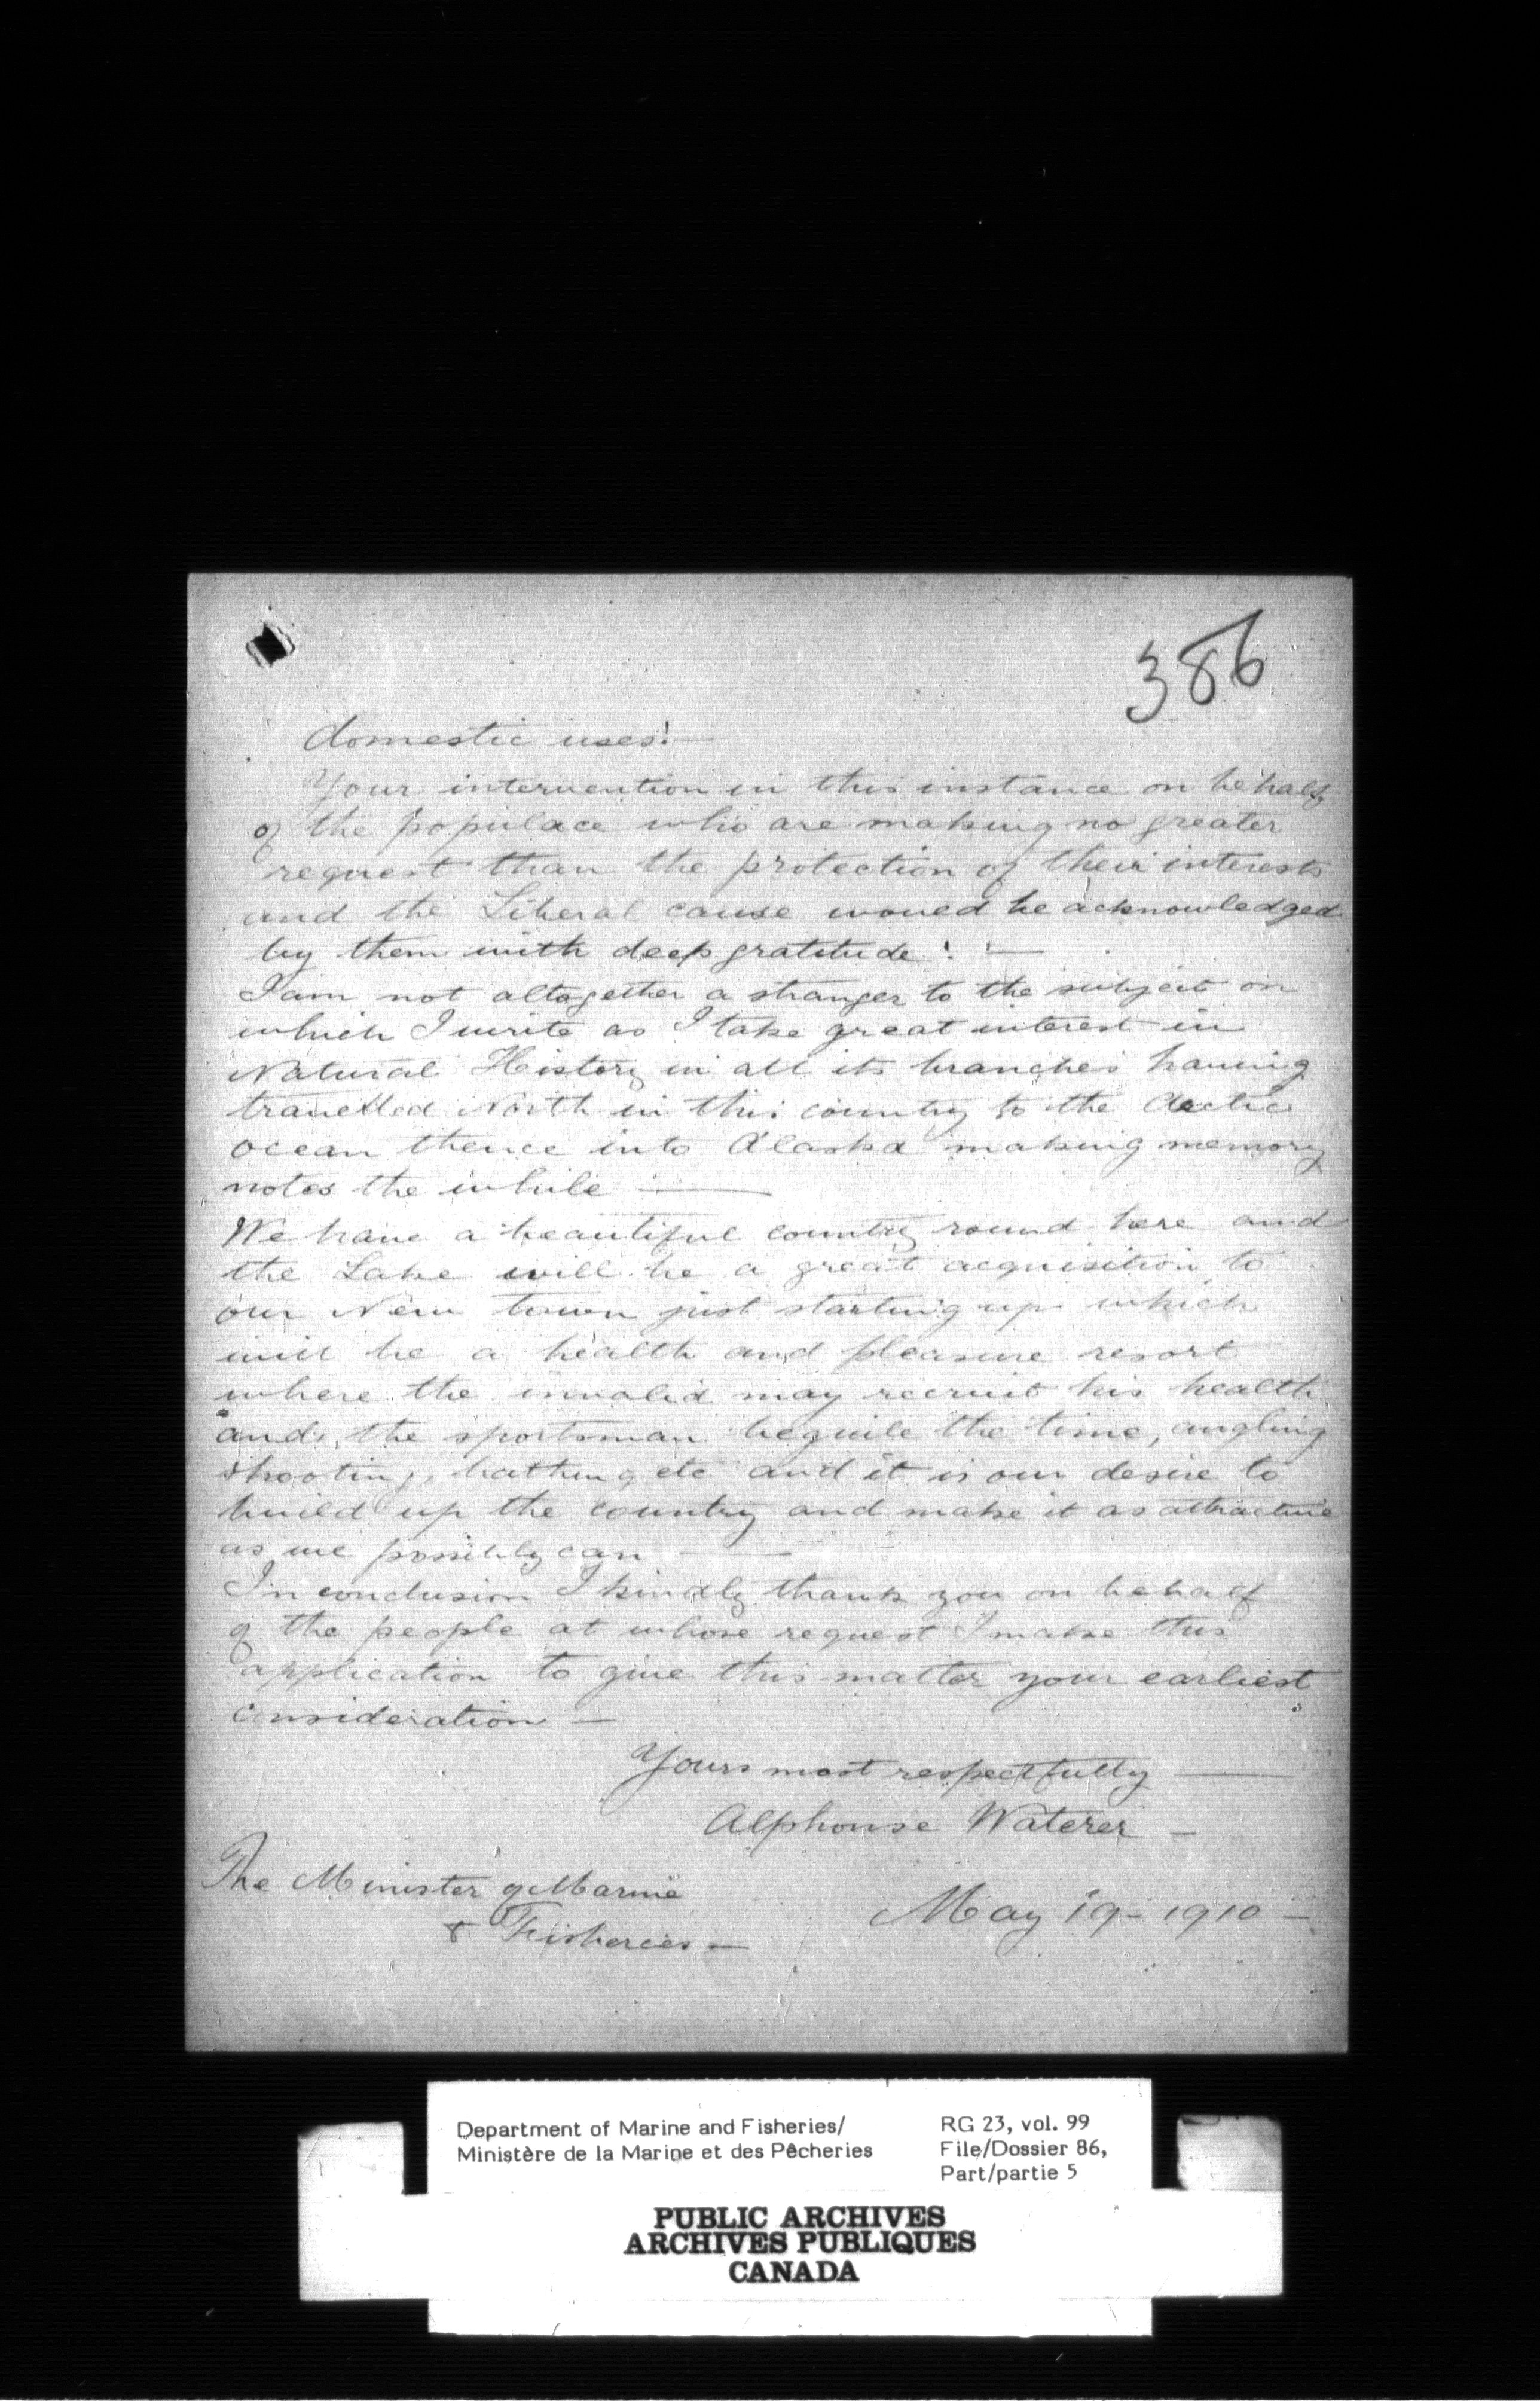 386
domestic uses! —
Your intervention in this instance on behalf
of the populace who are making no greater
request than the protection of their interests
and the Liberal cause would be acknowledged
by them with deep gratitude! —
I am not altogether a stranger to the subject on
which I write as I take great interest in
Natural History in all its branches having
travelled North in this country to the Arctic
ocean thence into Alaska making memory
notes the while —
We have a beautiful country round here and
the Lake will be a great acquisition to
our New town just starting up which
will be a health and pleasure resort
where the invalid may recruit his health
and, the sportsman beguile the time, angling
shooting, bathing etc and it is our desire to
build up the country and make it as attractive
as we possibly can —
In conclusion I kindly thank you on behalf
of the people at whose request I make this
application to give this matter your earliest
consideration —
Yours most respectfully —
Alphonse Waterer —
The Minister of Marine
& Fisheries —
May 19 - 1910 —
Department of Marine and Fisheries/
Ministère de la Marine et des Pêcheries
RG 23, vol. 99
File/Dossier 86,
Part/partie 5
PUBLIC ARCHIVES
ARCHIVES PUBLIQUES
CANADA